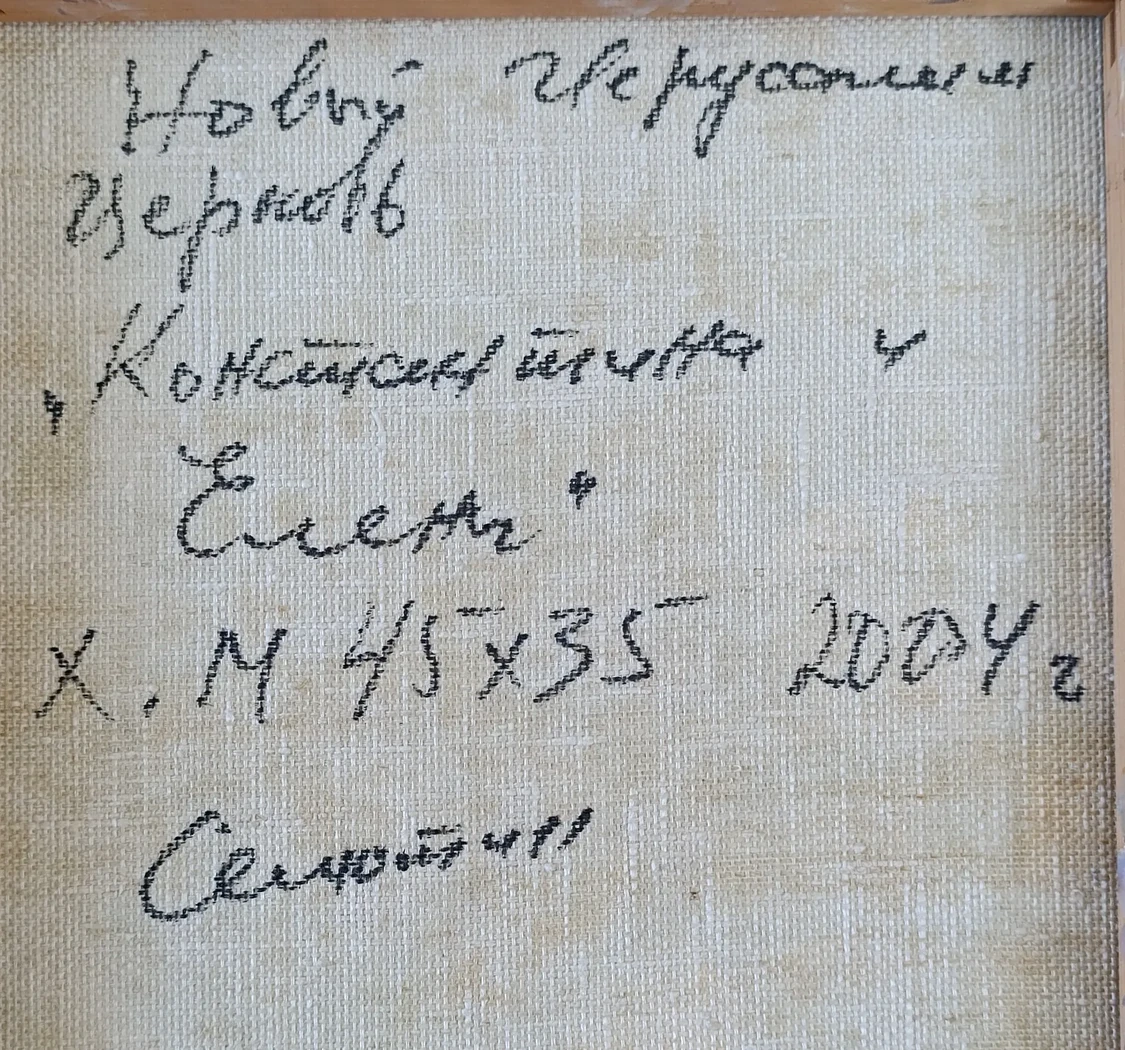 Новый Иерусалим
Церковь
„Константина и
Елены"
Х. М 45х35 2004 г